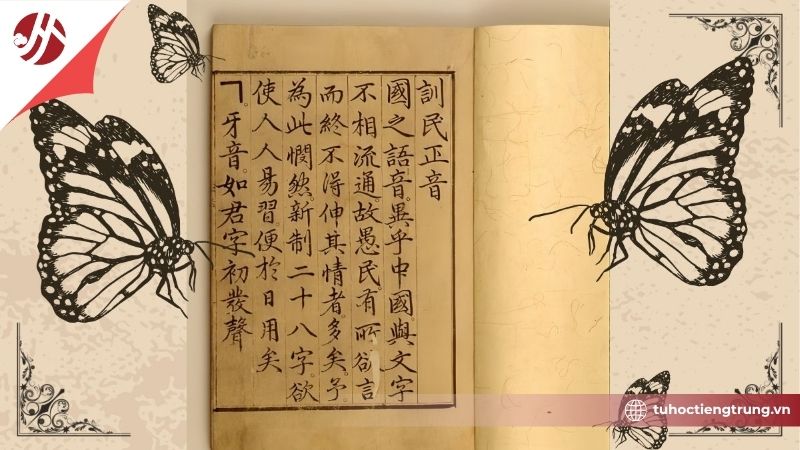 訓民正音
國之語音。異乎中國。與文字
不相流通。故愚民有所欲言
而終不得伸其情者多矣。予
為此憫然。新制二十八字。欲
使人人易習。便於日用矣
ㄱ。牙音。如君字初發聲
tuhoctiengtrung.vn